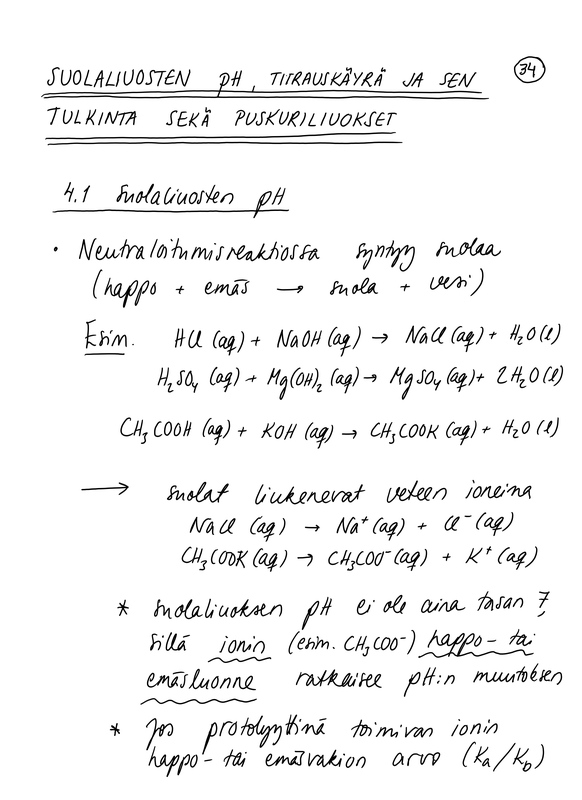 34
SUOLALIUOSTEN pH, TITRAUSKÄYRÄ JA SEN
TULKINTA SEKÄ PUSKURILIUOKSET
4.1 Suolaliuosten pH
• Neutraloitumisreaktiossa syntyy suolaa
(happo + emäs → suola + vesi)
Esim. HCl (aq) + NaOH (aq) → NaCl (aq) + H₂O (l)
H₂SO₄ (aq) + Mg(OH)₂ (aq) → MgSO₄ (aq) + 2H₂O (l)
CH₃COOH (aq) + KOH (aq) → CH₃COOK (aq) + H₂O (l)
→ suolat liukenevat veteen ioneina
NaCl (aq) → Na⁺ (aq) + Cl⁻ (aq)
CH₃COOK (aq) → CH₃COO⁻ (aq) + K⁺ (aq)
* suolaliuoksen pH ei ole aina tasan 7,
sillä ionin (esim. CH₃COO⁻) happo- tai
emäsluonne ratkaisee pH:n muutoksen
* Jos protolyyttinä toimivan ionin
happo- tai emäsvakion arvo (Ka/Kb)